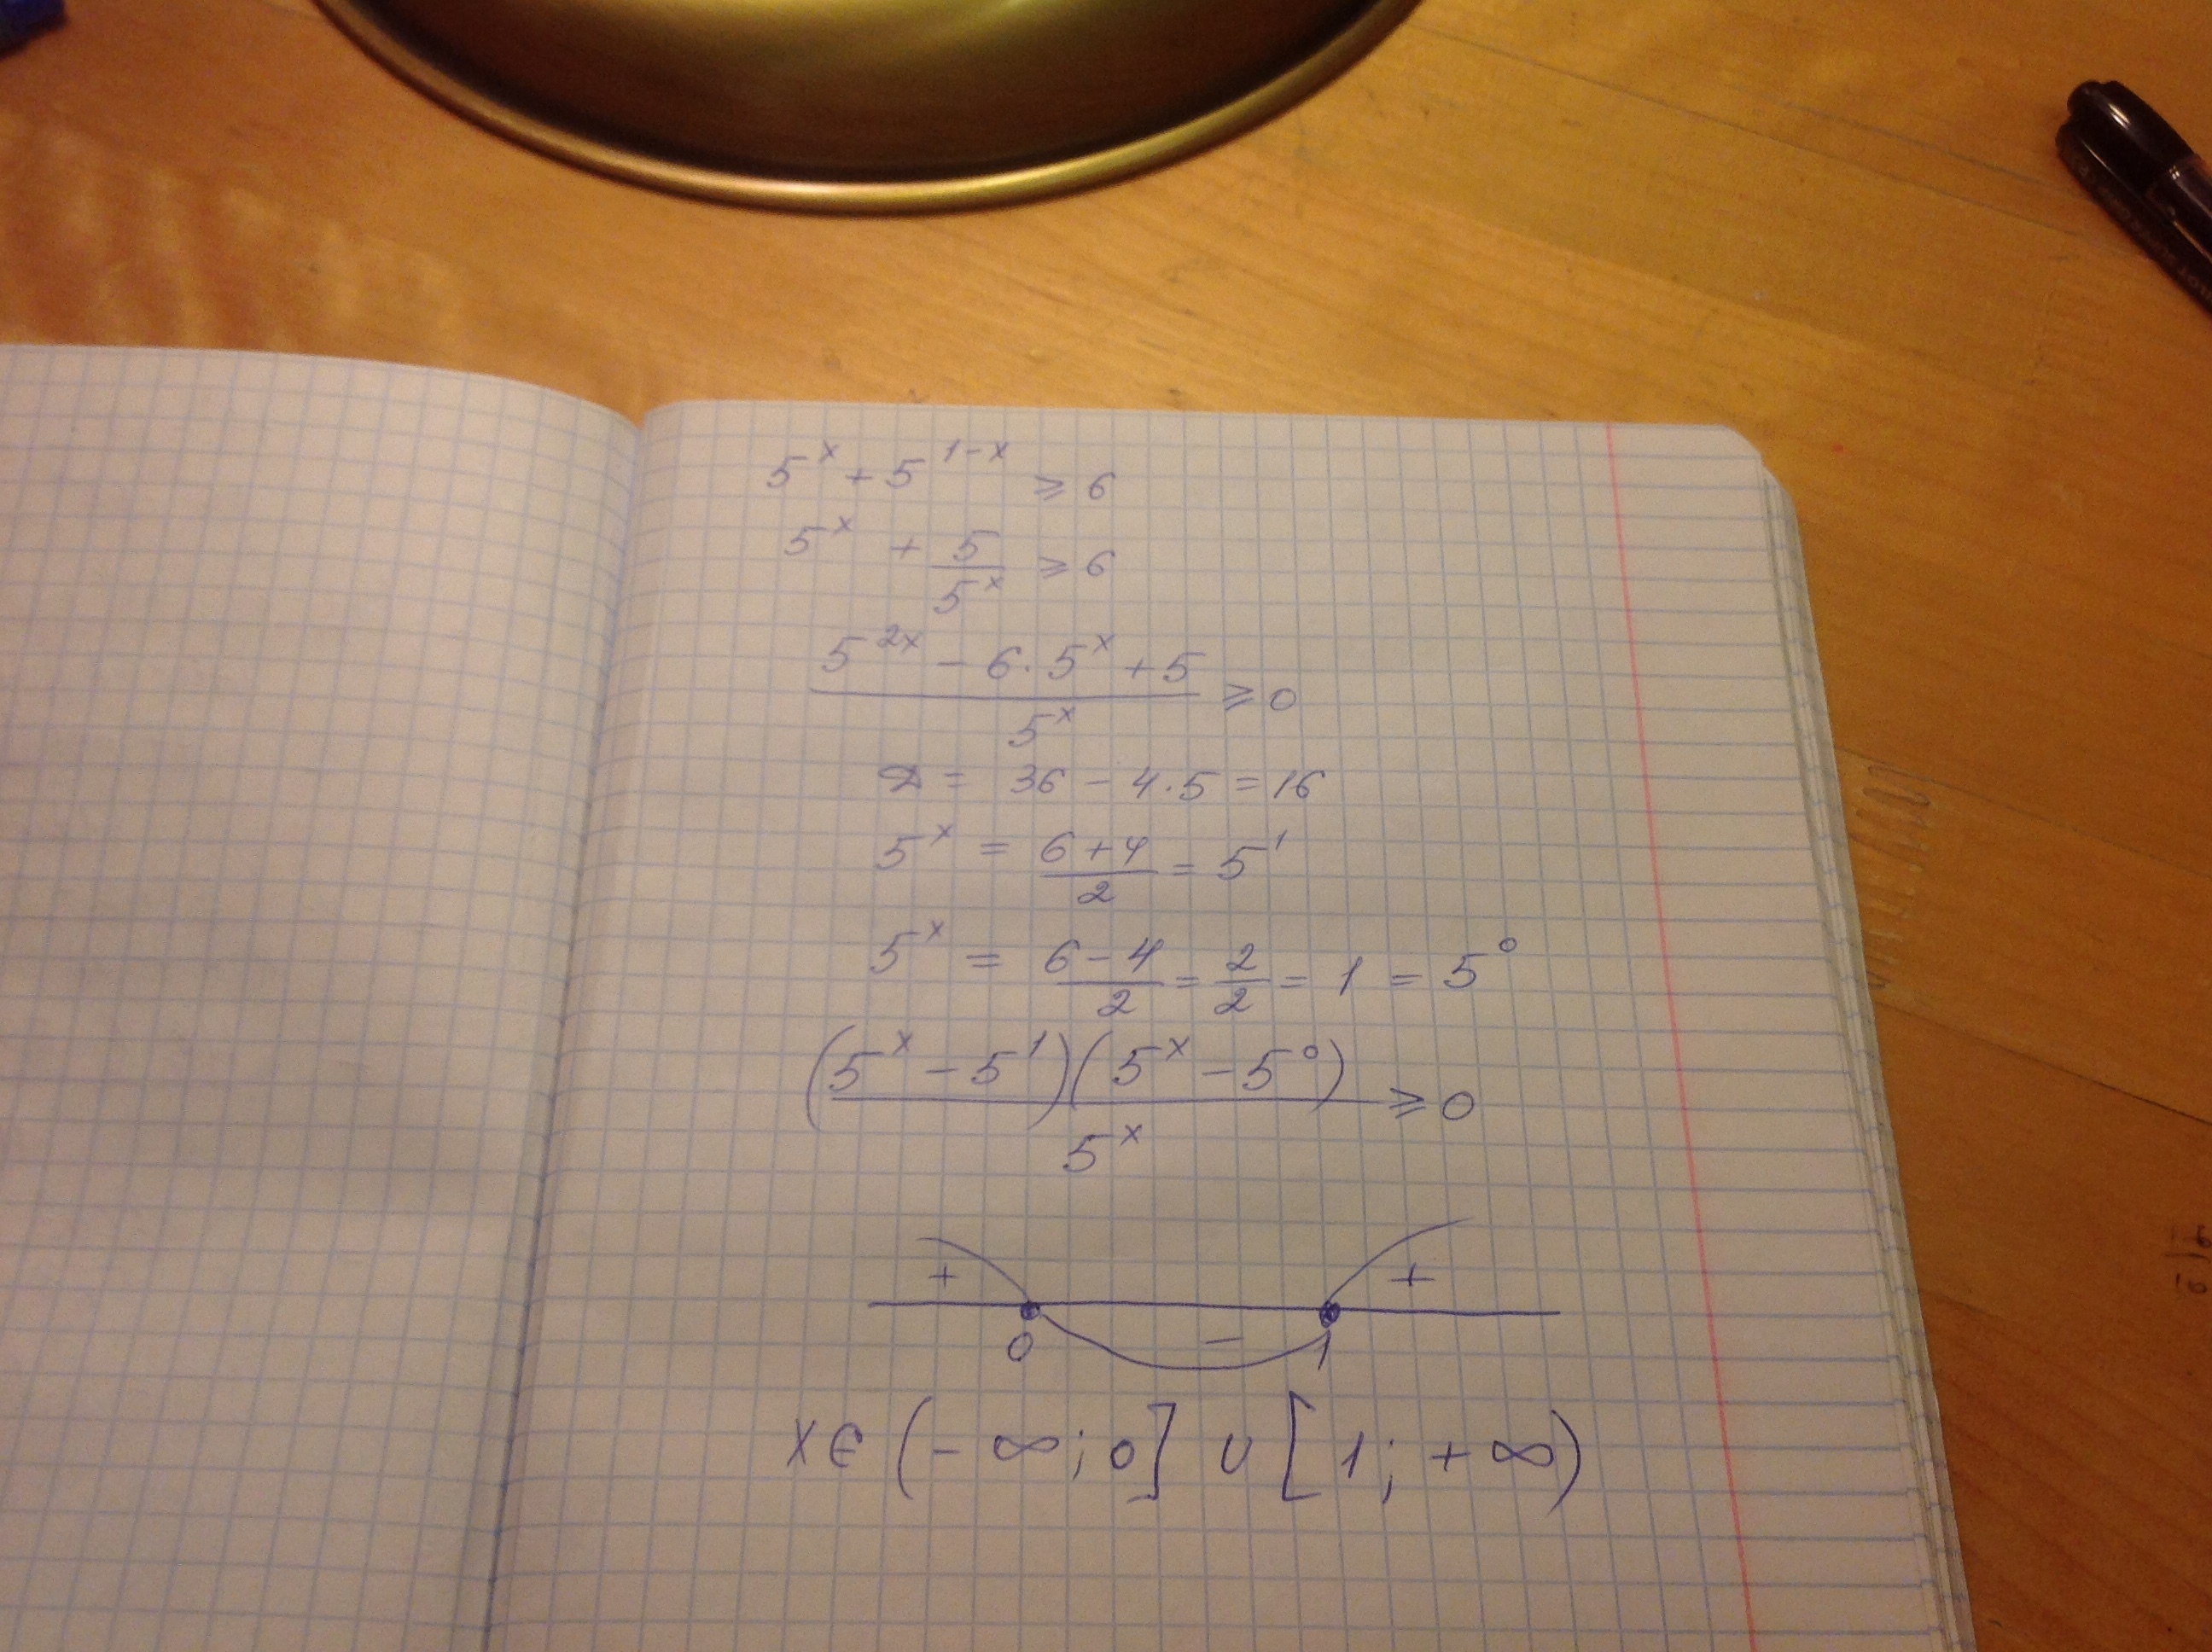 5^x + 5^(1-x) ⩾ 6
5^x + 5/5^x ⩾ 6
(5^(2x) - 6·5^x + 5)/5^x ⩾ 0
D = 36 - 4·5 = 16
5^x = (6+4)/2 = 5^1
5^x = (6-4)/2 = 2/2 = 1 = 5^0
(5^x - 5^1)(5^x - 5^0)/5^x ⩾ 0
+ - +
0 1
x∈(-∞; 0] ∪ [1; +∞)